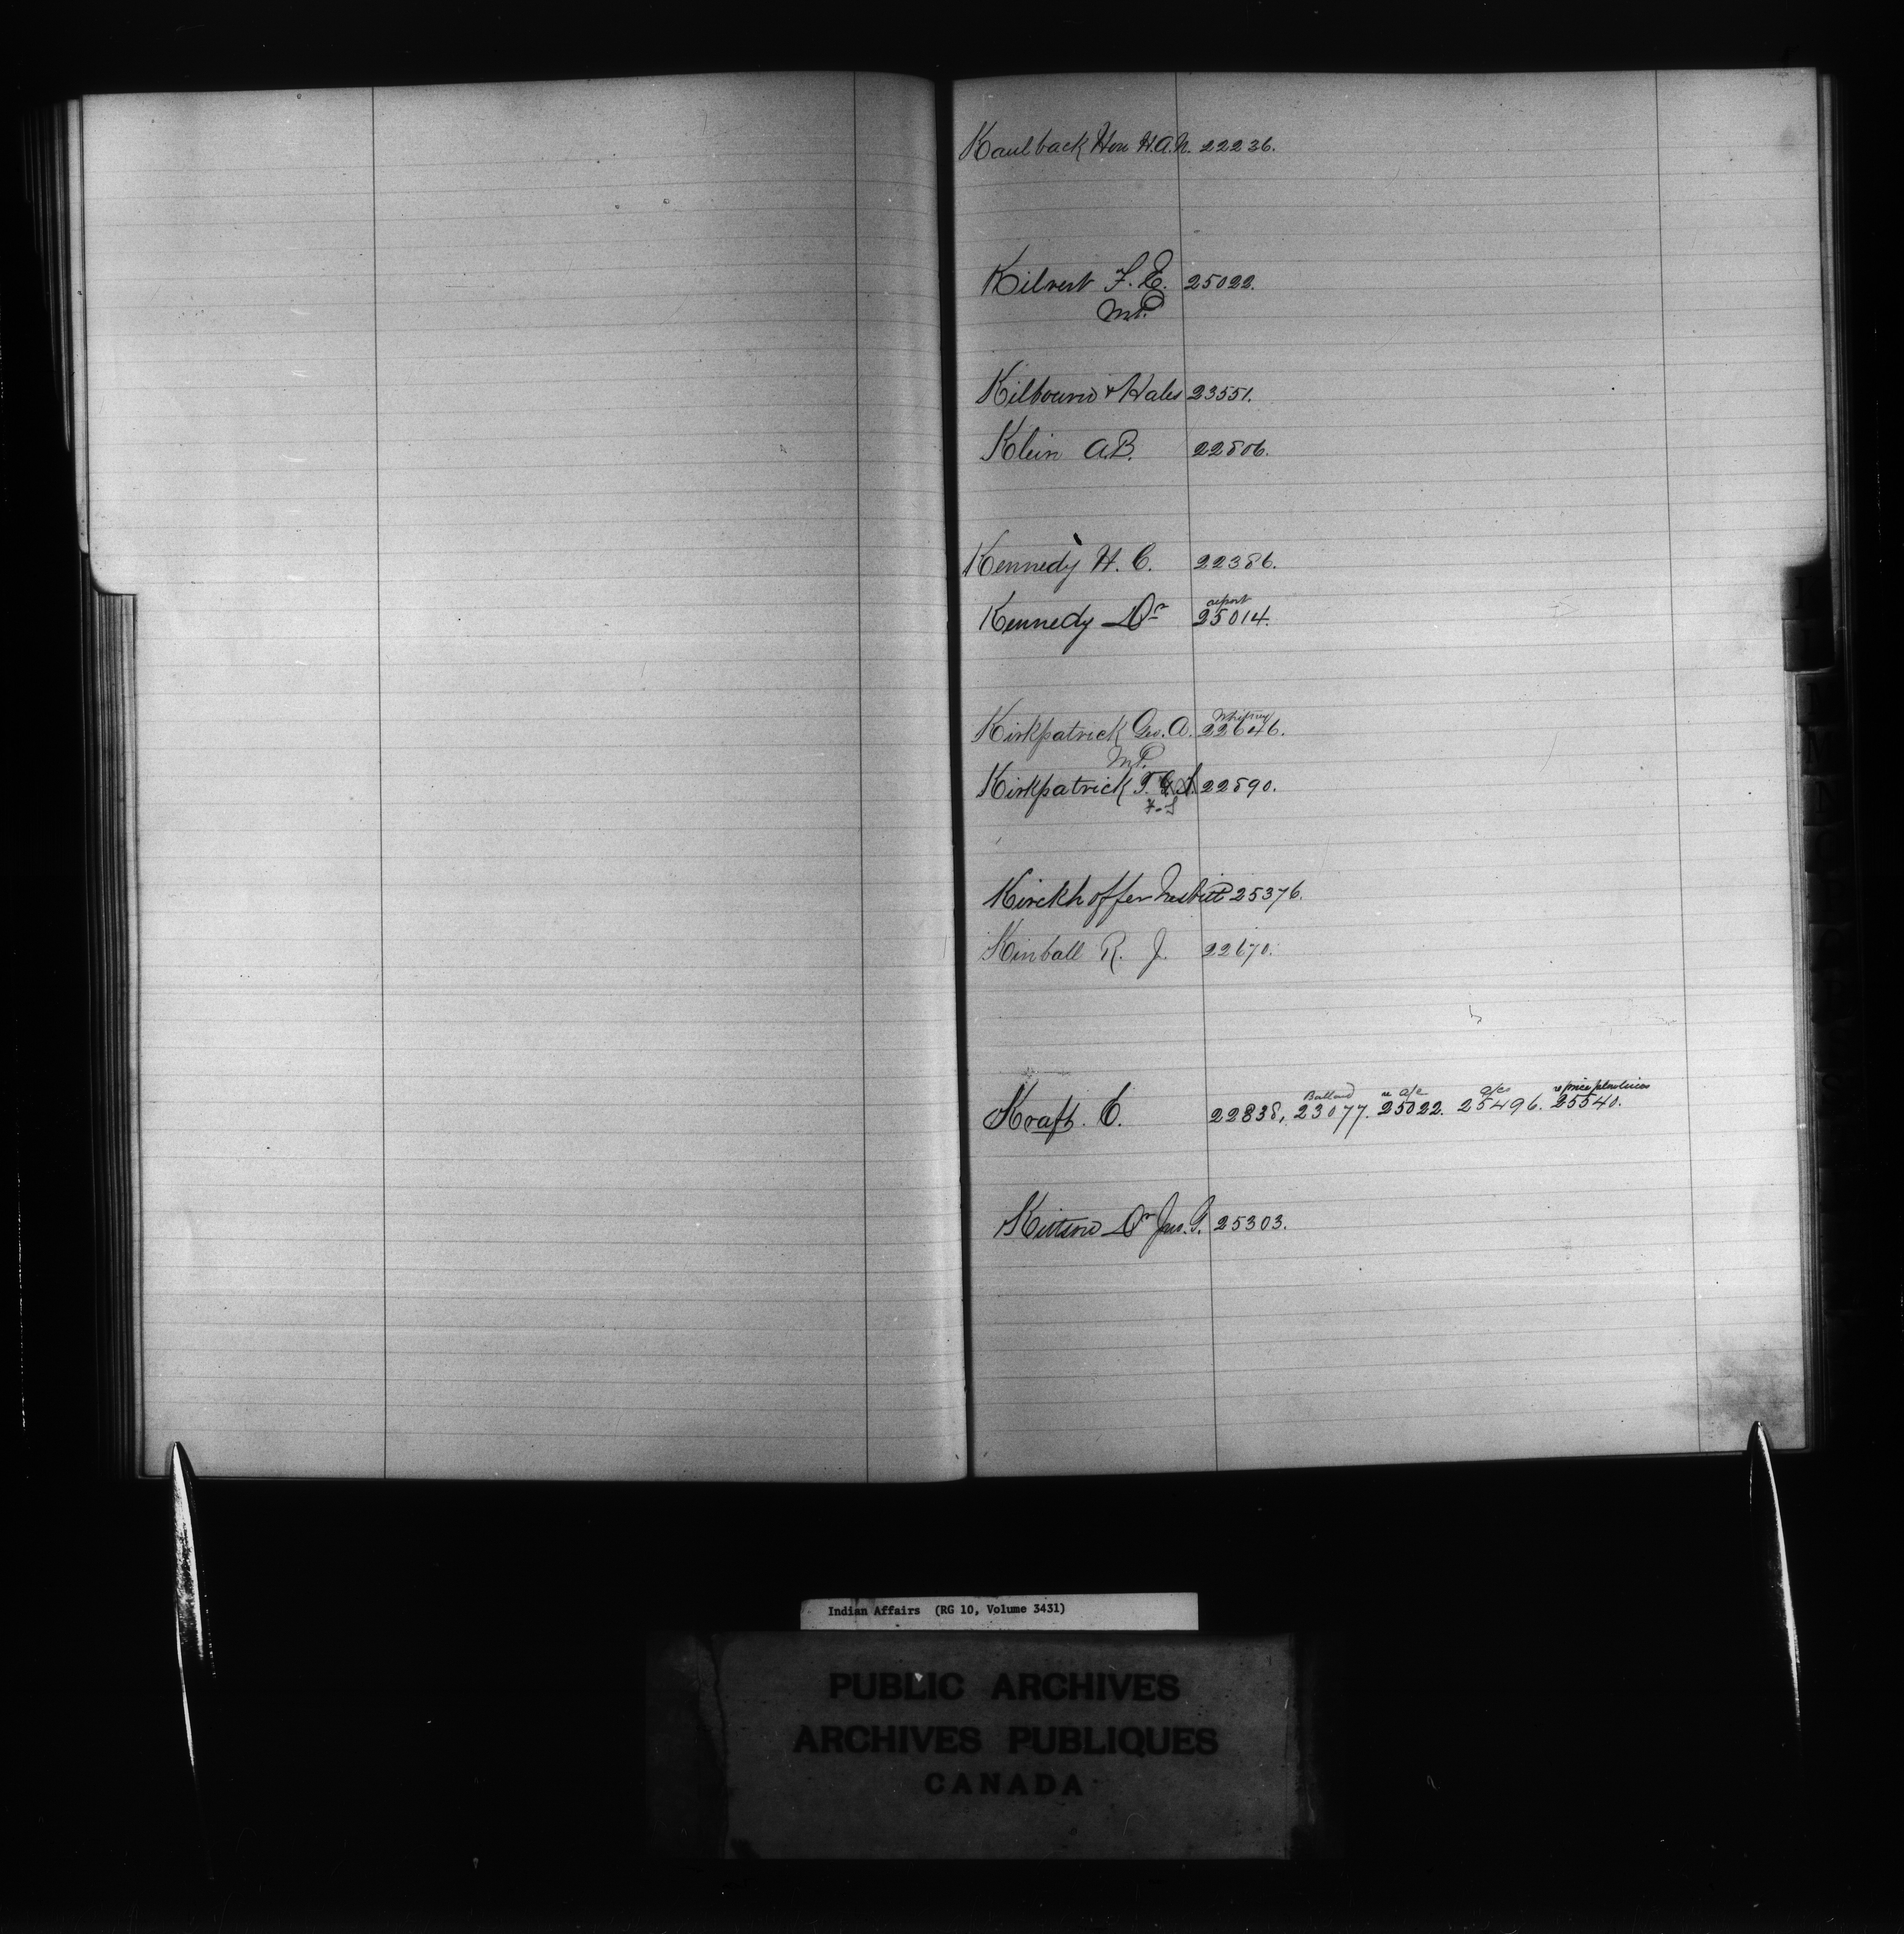 Kaulback Hon H.A.N. 22236.
Kilvert F. E. 25022.
M.P.
Kilbourn & Hales 23551.
Klein A.B. 22806.
Kennedy H. C. 22386.
report
Kennedy Dr 25014.
Whitney
Kirkpatrick Geo. A. 22646.
M.P.
Kirkpatrick T. 22890.
F. S
Kirckhoffer Nesbitt 25376.
Kimball R. J. 22670.
Ballard re a/c a/cs re price
Kraft. C. 22838, 23077. 25022. 25496. 25540.
Kittson Dr Jno. G. 25303.
Indian Affairs (RG 10, Volume 3431)
PUBLIC ARCHIVES
ARCHIVES PUBLIQUES
CANADA